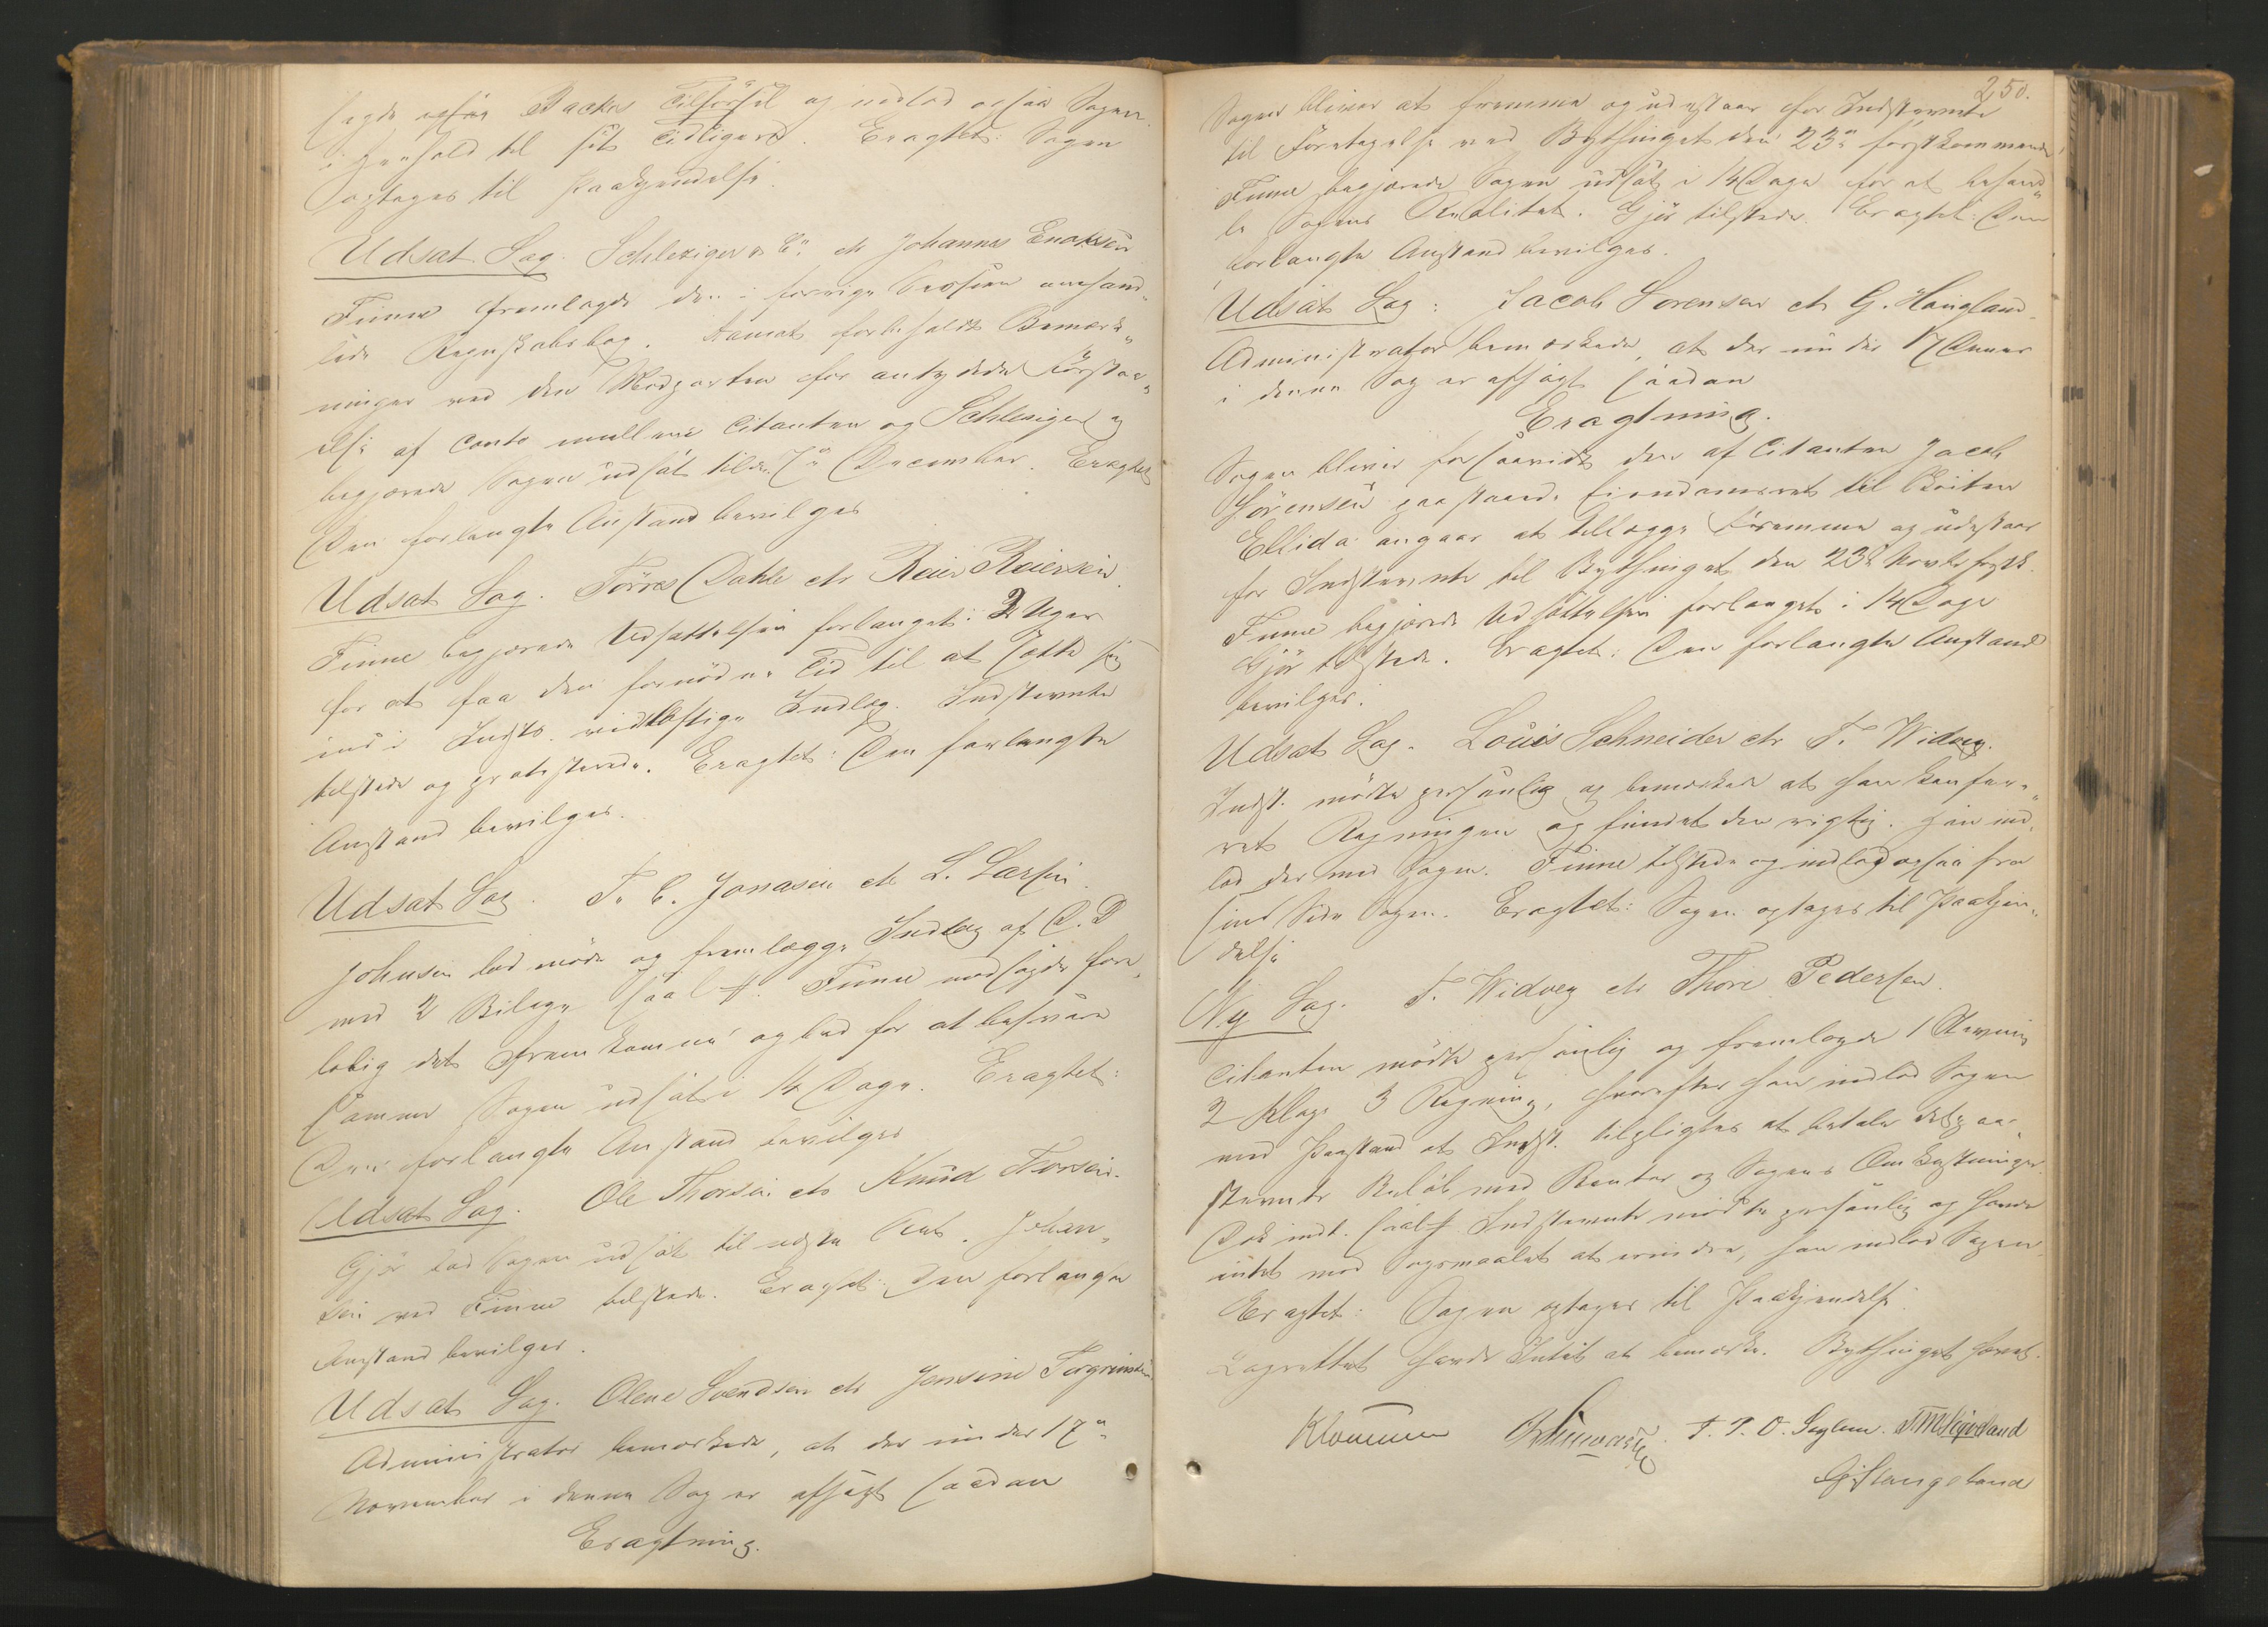 sagde ogsaa Backes Tilførsel og indlod ogsaa Sagen
i Henhold til sit Tidligere. Eragtet: Sagen
optages til Paakjendelse.
Udsat Sag. Schlesiger & C. ctr Johannes Enoksen
Finne fremlagde den i forrige Session omhand„
lede Regnskabsbog. Samt forbeholdt Bemærk„
ninger ved den Modparten for antydede Forstaa„
else af Conto mellem Citanten og Schlesiger og
begjærede Sagen udsat til den 7de December. Eragtet
Den forlangte Anstand bevilges
Udsat Sag. Törres Dahle ctr Reier Reiersen.
Finne begjærede Udsættelsen forlænget i 2 Uger
for at faa den fornødne Tid til at sætte sig
ind i Indsts. vidtløftige Indlæg. Indstevnte
tilstede og protesterede. Eragtet: Den forlangte
Anstand bevilges.
Udsat Sag. T. C. Jonasen ctr L. Larsen.
Johnsen lod møde og fremlægge Indlæg af D. D
med 2 Bilage saal. Finne modsagde fore„
løbig det Fremkomne og bad for at besvare
samme Sagen udsat i 14 Dage. Eragtet:
Den forlangte Anstand bevilges
Udsat Sag. Ole Thorsen ctr Knud Torsen.
Gjør bad Sagen udsat til næste Ret. Johan„
sen ved Finne tilstede. Eragtet: Den forlangte
Anstand bevilges.
Udsat Sag. Olene Svendsen ctr Jensine Torgrimsen
Administrator bemærkede, at der under 17de
November i denne Sag er afsagt saadan
Eragtning.
250.
Sagen bliver at fremme og udestaar for Indstevnte
til Foretagelse ved Bythinget den 23de førstkommende,
Finne begjærede Sagen udsat i 14 Dage for at behand„
le Sagens Realitet. Gjør tilstede. Eragtet: Den
forlangte Anstand bevilges.
Udsat Sag: Jacob Sorensen ctr G. Haugland
Administrator bemærkede, at der under 17 Dennes
i denne Sag er afsagt saadan
Eragtning.
Sagen bliver forsaavidt den af Citanten Jacob
Sörensen paastaaede Eiendomsret til Skøiten
Ellida angaar at tillægge Fremme og udestaar
for Indstevnte til Bythinget den 23de Novbr førstk.
Finne begjærede Udsættelsen forlænget i 14 Dage
Gjør tilstede. Eragtet: Den forlangte Anstand
bevilges.
Udsat Sag. Louis Schneider ctr T. Widvey.
Indst. mødte personlig og bemærkede at han konfere„
ret Regningen og fundet den rigtig. Han ind„
lod dermed Sagen. Finne tilstede og indlod ogsaa fra
sin Side Sagen. Eragtet: Sagen optages til Paakjen„
delse
Ny Sag. T. Widvey ctr Thore Pedersen.
Citanten mødte personlig og fremlagde 1 Stevning
2 Klage 3 Regning, hvorefter han indlod Sagen
med Paastand at Indst. tilpligtes at betale det paa„
stevnte Beløb med Renter og Sagens Omkostninger.
Dok indt. saal. Indstevnte mødte personlig og havde
intet mod Søgsmaalet at erindre, han indlod Sagen
Eragtet: Sagen optages til Paakjendelse.
Lagrettet havde Intet at bemærke. Bythinget hævet.
T. P. O. Seglem. T M Sigveland
G. Stangeland